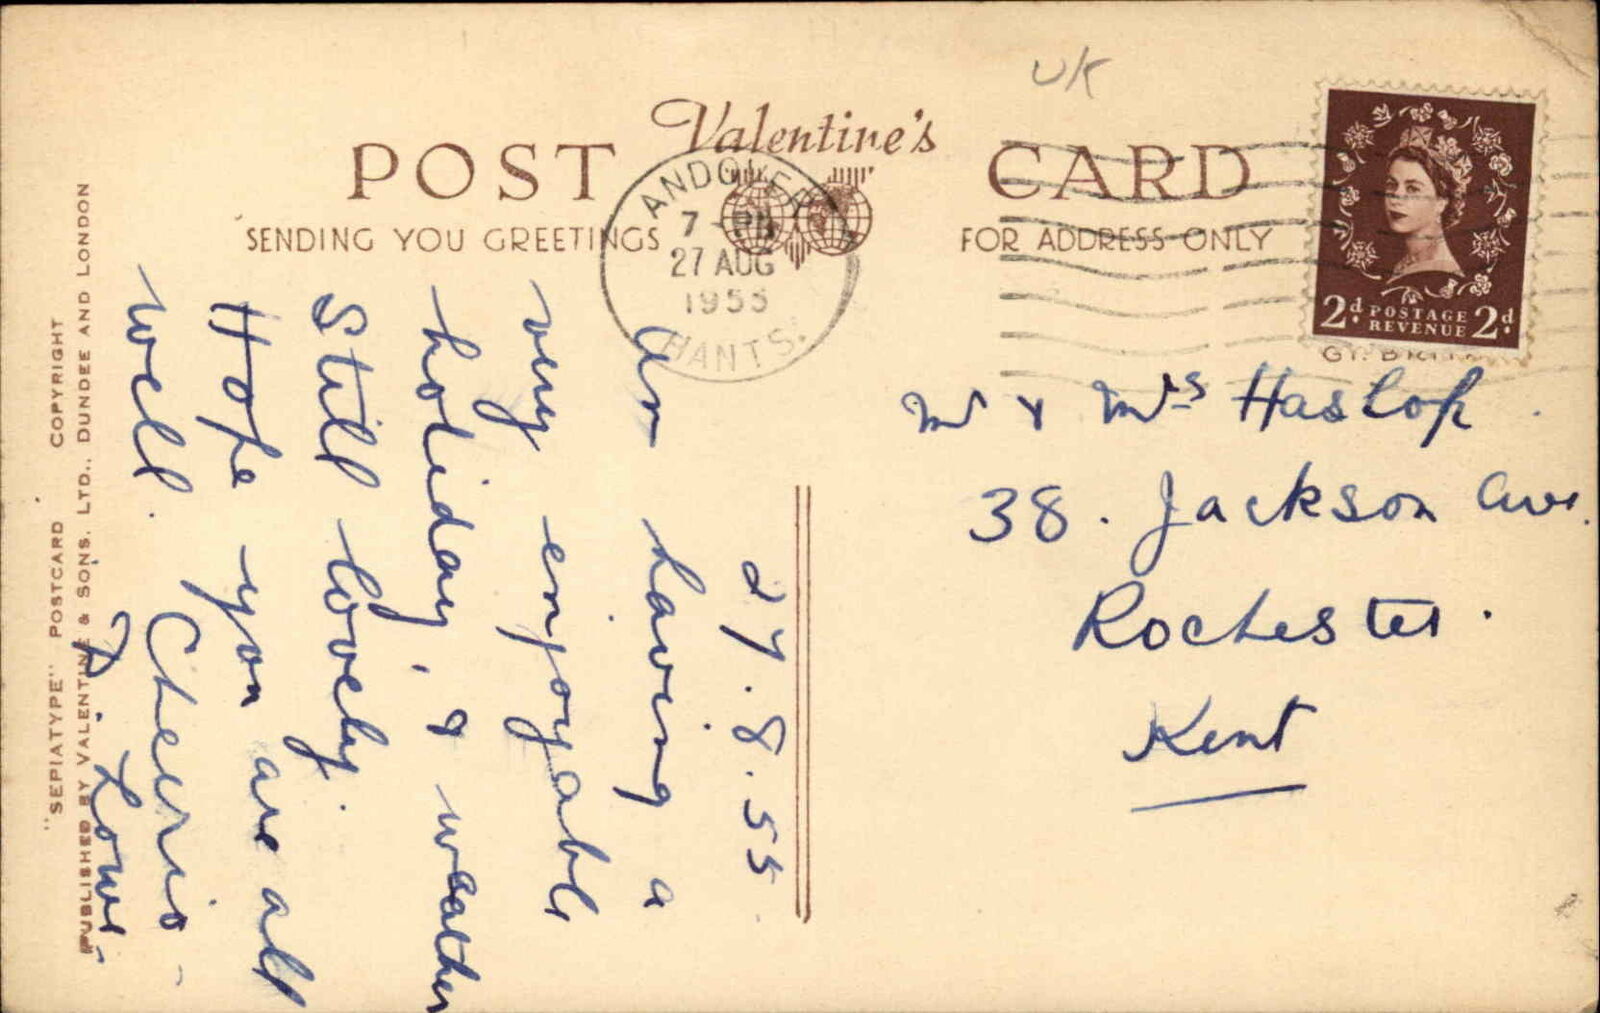 UK
Valentine's
POST CARD
SENDING YOU GREETINGS
FOR ADDRESS ONLY
ANDOVER
7 - PM
27 AUG
1955
HANTS.
2d. POSTAGE REVENUE 2d.
27.8.55
Am having a
very enjoyable
holiday, & weather
still lovely.
Hope you are all
well. Cheerio -
Mr & Mrs Haslop.
38. Jackson Ave.
Rochester.
Kent
"SEPIATYPE" POSTCARD COPYRIGHT
PUBLISHED BY VALENTINE & SONS, LTD., DUNDEE AND LONDON